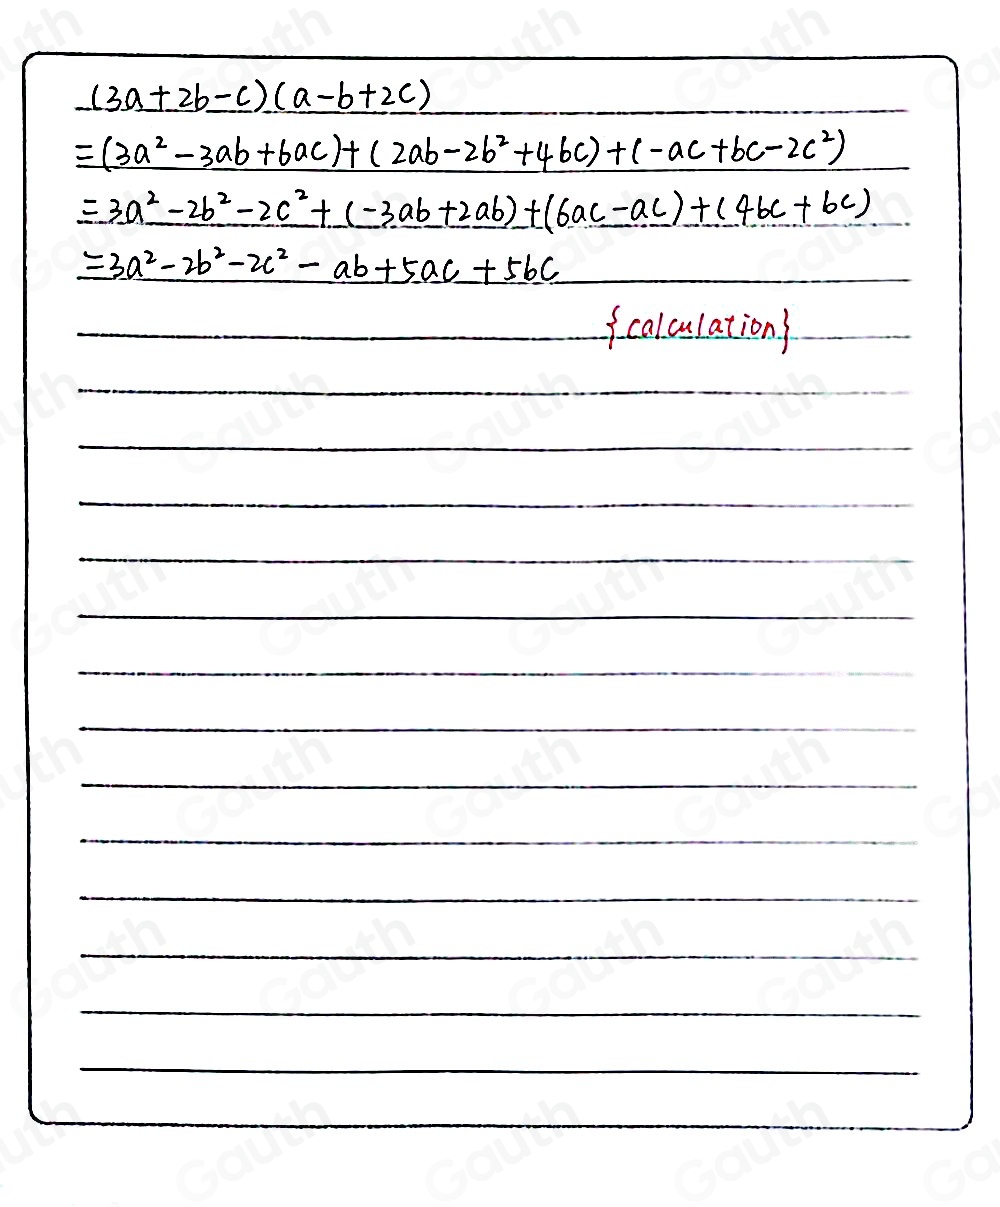 (3a+2b-c)(a-b+2c)
=(3a²-3ab+6ac)+(2ab-2b²+4bc)+(-ac+bc-2c²)
=3a²-2b²-2c²+(-3ab+2ab)+(6ac-ac)+(4bc+bc)
=3a²-2b²-2c²-ab+5ac+5bc
{calculation}
Gauth